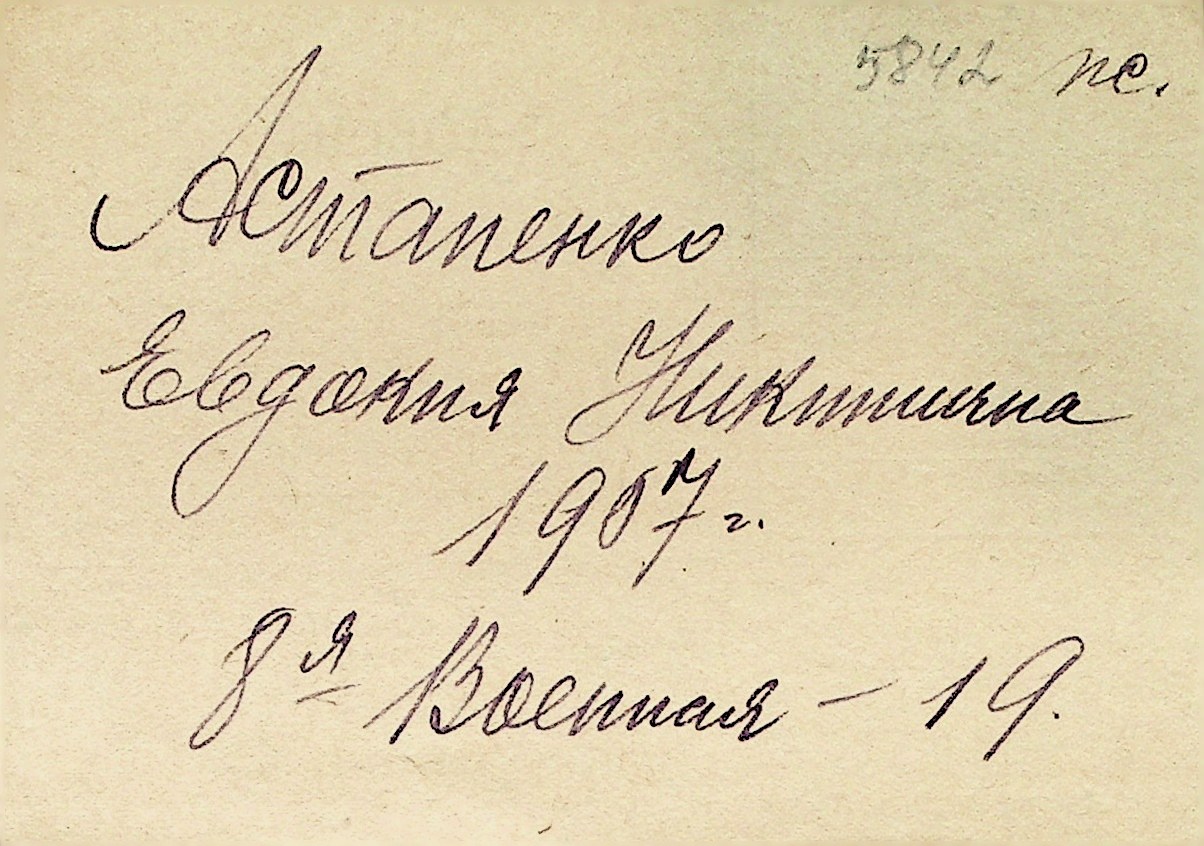 5842 пс.
Астапенко
Евдокия Никитична
1907 г.
8я Военная - 19.